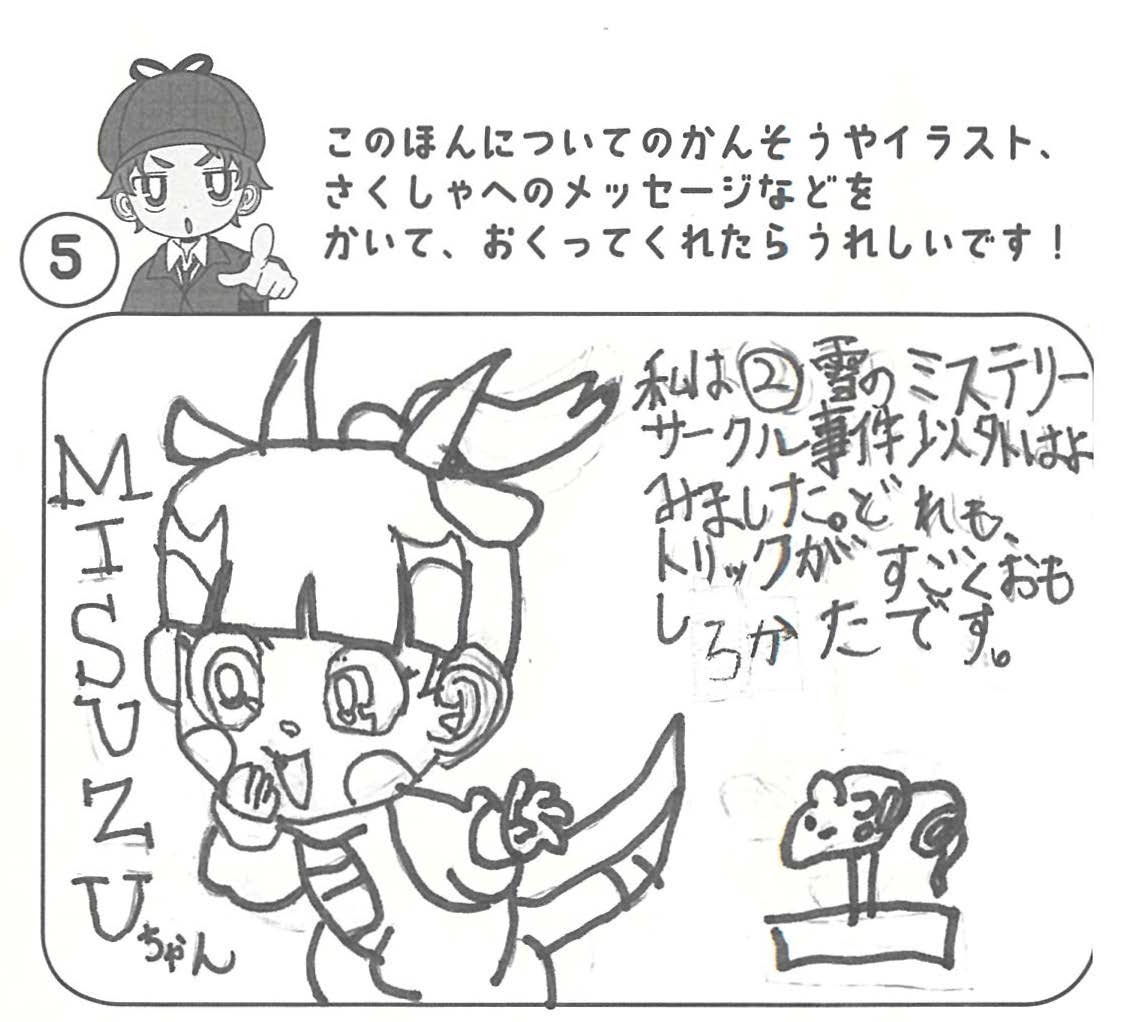 5
このほんについてのかんそうやイラスト、
さくしゃへのメッセージなどを
かいて、おくってくれたらうれしいです！
MISUZUちゃん
私は②雪のミステリー
サークル事件以外はよ
みました。どれも、
トリックがすごくおも
しろかたです。